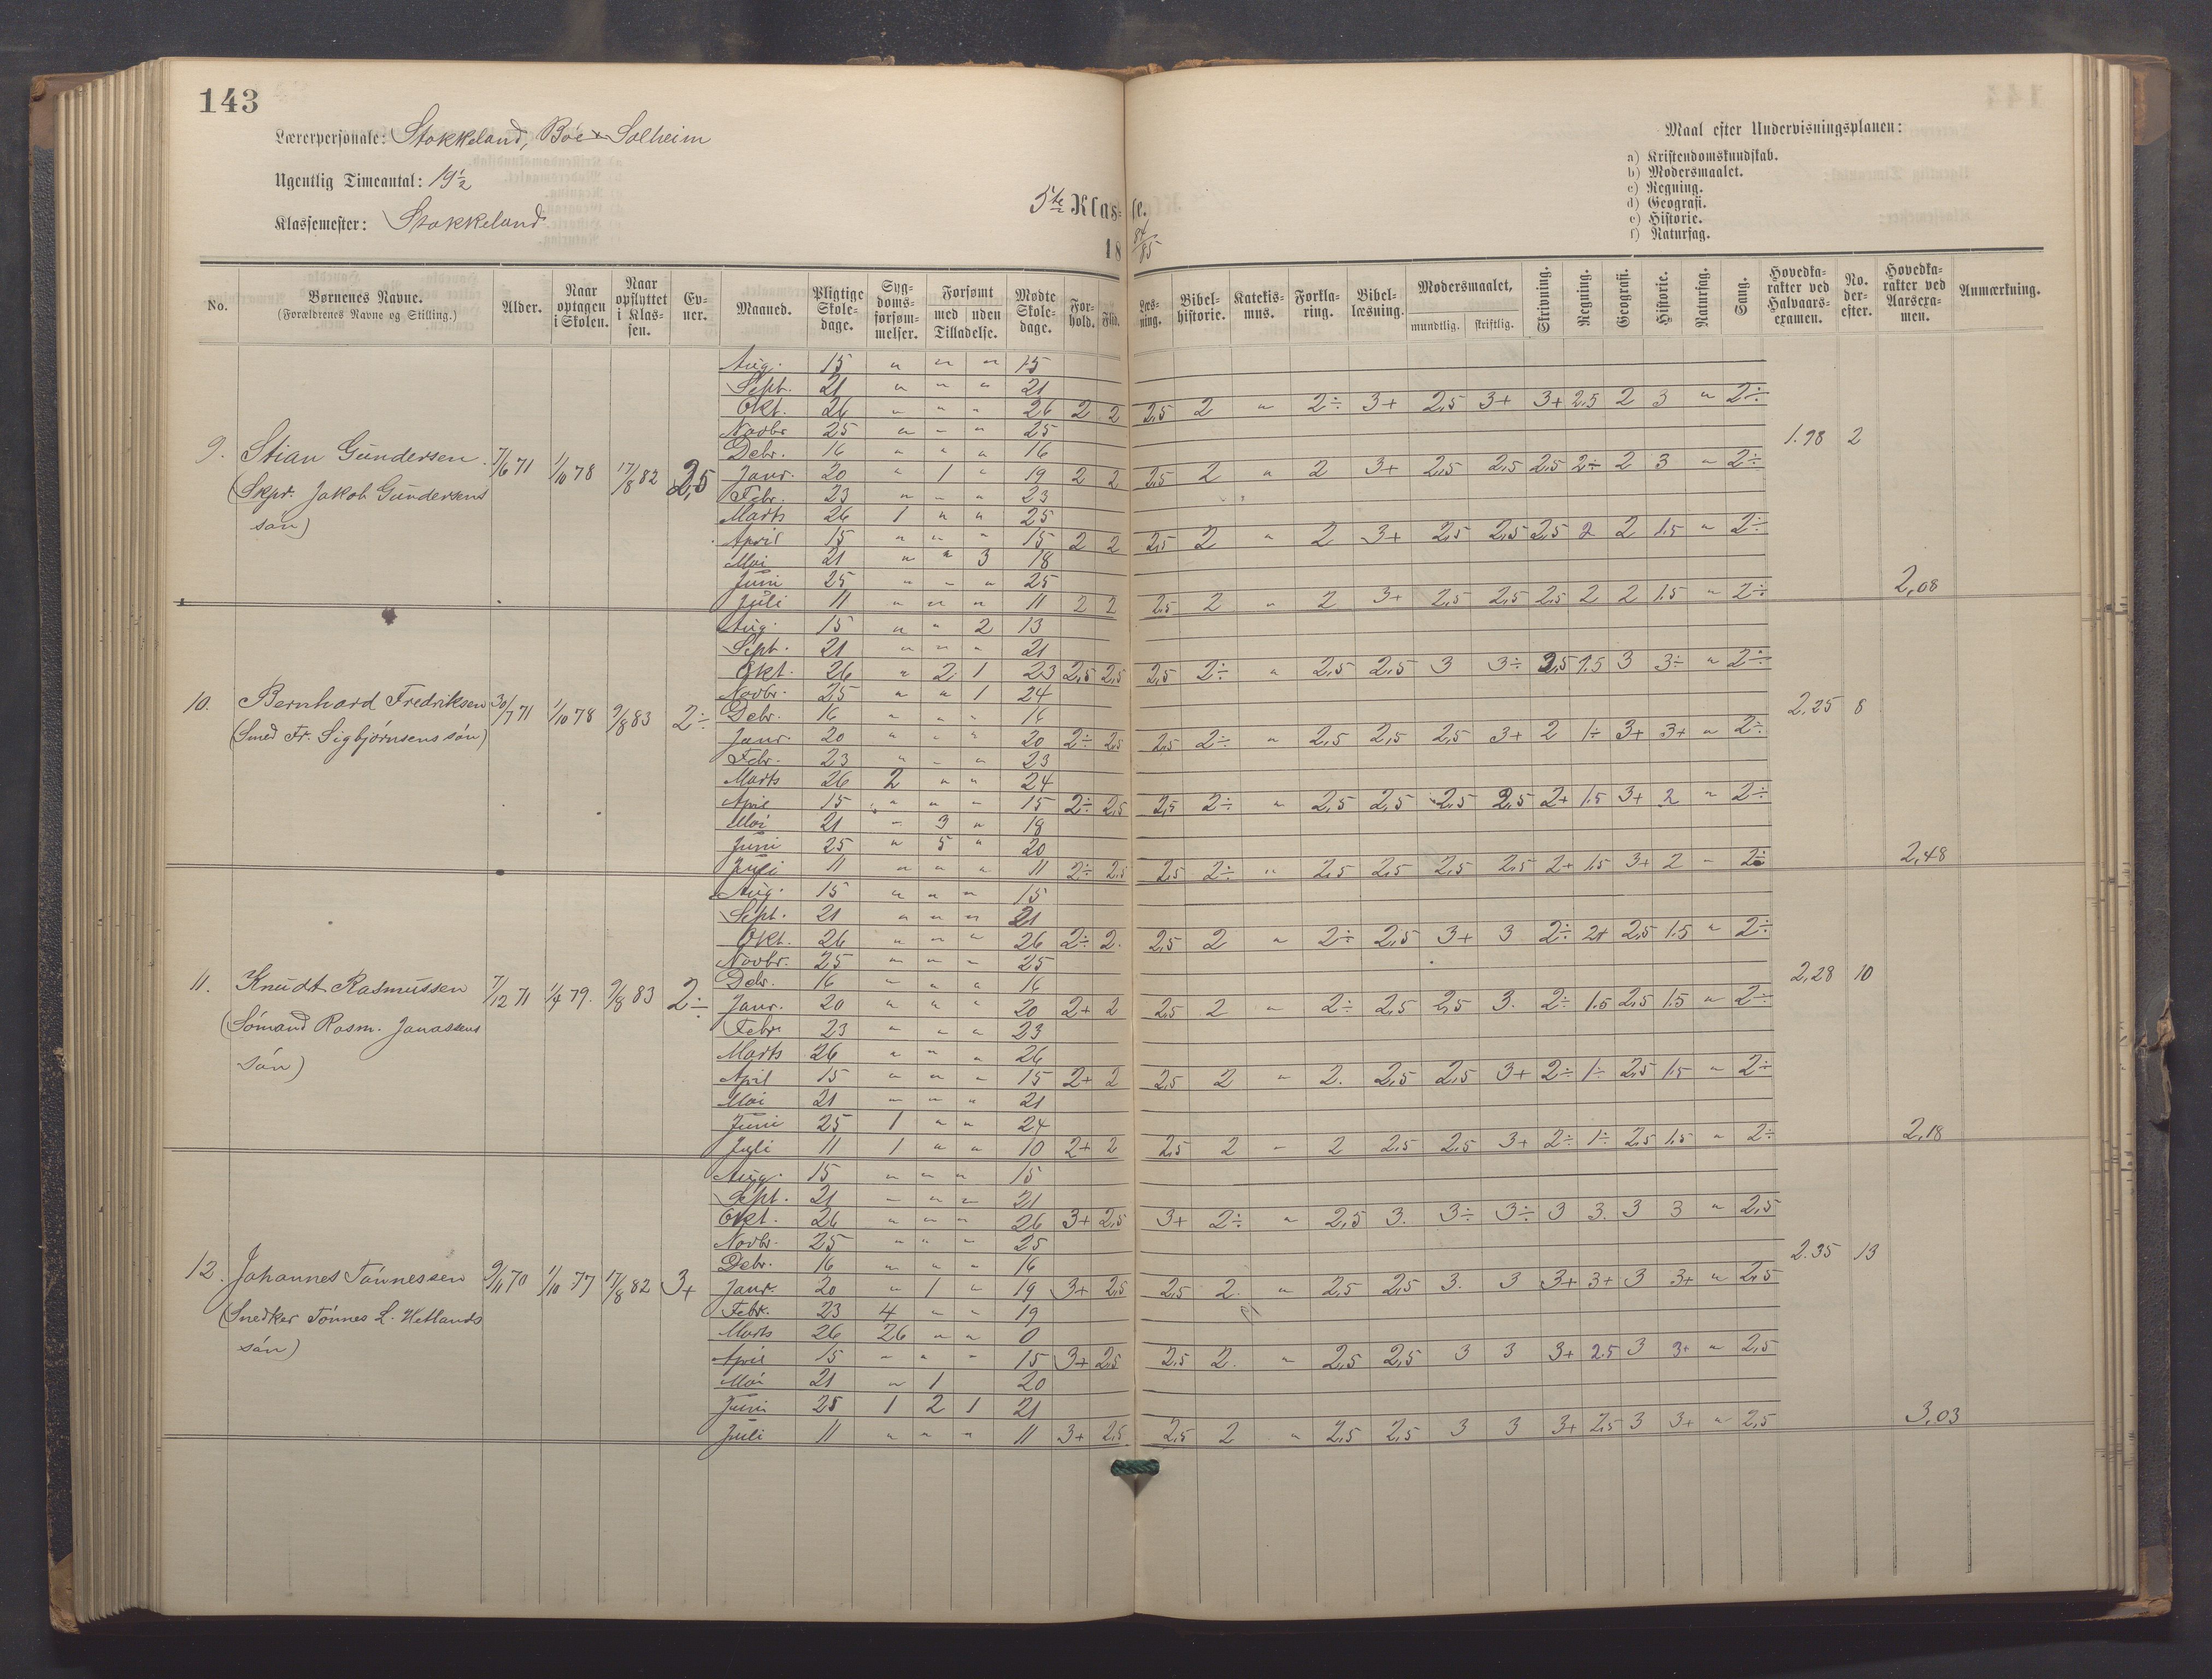 143
Lærerpersonale: Stokkeland, Böe & Solheim
Ugentlig Timeantal: 19 1/2
Klassemester: Stokkeland
5te Klasse.
18 84/85
Maal efter Undervisningsplanen:
a) Kristendomskundskab.
b) Modersmaalet.
c) Regning.
d) Geografi.
e) Historie.
f) Naturfag.
No. | Børnenes Navne. (Forældrenes Navne og Stilling.) | Alder. | Naar optagen i Skolen. | Naar opflyttet i Klassen. | Evner. | Maaned. | Pligtige Skoledage. | Sygdomsforsømmelser. | Forsømt med uden Tilladelse. | Mødte Skoledage. | Forhold. | Flid. | Læsning. | Bibelhistorie. | Katekismus. | Forklaring. | Bibellæsning. | Modersmaalet, mundtlig. skriftlig. | Skrivning. | Regning. | Geografi. | Historie. | Naturfag. | Sang. | Hovedkarakter ved Halvaarsexamen. | No. derefter. | Hovedkarakter ved Aarsexamen. | Anmærkning.
9. Stian Gundersen. 7/6 71 1/10 78 17/8 82 2,5
(Skpr. Jakob Gundersens
søn)
Aug. 15 " " " 15
Sept. 21 " " " 21
Okt. 26 " " " 26 2 2 2,5 2 " 2÷ 3+ 2,5 3+ 3+ 2.5 2 3 " 2÷
Novbr 25 " " " 25
Debr. 16 " " " 16 1.98 2
Janr. 20 " 1 " 19 2 2 2,5 2 " 2 3+ 2,5 2,5 2,5 2÷ 2 3 " 2÷
Febr. 23 " " " 23
Marts 26 1 " " 25
April 15 " " " 15 2 2 2,5 2 " 2 3+ 2,5 2,5 2,5 2 2 1.5 " 2÷
Mai 21 " " 3 18
Juni 25 " " " 25
Juli 11 " " " 11 2 2 2,5 2 " 2 3+ 2,5 2,5 2,5 2 2 1.5 " 2÷ 2,08
10. Bernhard Fredriksen 30/7 71 1/10 78 9/8 83 2÷
(Smed Fr. Sigbjørnsens søn)
Aug. 15 " " 2 13
Sept. 21 " " " 21
Okt. 26 " 2 1 23 2,5 2,5 2,5 2÷ " 2,5 2,5 3 3÷ 2,5 1.5 3 3÷ " 2÷
Novbr. 25 " " 1 24
Debr. 16 " " " 16 2,25 8
Janr. 20 " " " 20 2÷ 2,5 2,5 2÷ " 2,5 2,5 2,5 3+ 2 1÷ 3+ 3+ " 2÷
Febr. 23 " " " 23
Marts 26 2 " " 24
April 15 " " " 15 2÷ 2,5 2,5 2÷ " 2,5 2,5 2,5 2,5 2+ 1.5 3+ 2 " 2÷
Mai 21 " 3 " 18
Juni 25 " 5 " 20
Juli 11 " " " 11 2÷ 2,5 2,5 2÷ " 2,5 2,5 2,5 2,5 2+ 1.5 3+ 2 " 2÷ 2,48
11. Knudt Rasmussen 7/12 71 1/4 79. 9/8 83 2÷
(Sömand Rasm. Jonassens
søn)
Aug. 15 " " " 15
Sept. 21 " " " 21
Okt. 26 " " " 26 2÷ 2. 2,5 2 " 2÷ 2,5 3+ 3 2÷ 2+ 2,5 1.5 " 2÷
Novbr. 25 " " " 25
Debr. 16 " " " 16 2,28 10
Janr. 20 " " " 20 2+ 2 2,5 2 " 2÷ 2,5 2,5 3. 2÷ 1.5 2,5 1.5 " 2÷
Febr. 23 " " " 23
Marts 26 " " " 26
April 15 " " " 15 2+ 2 2,5 2 " 2. 2,5 2,5 3+ 2÷ 1÷ 2,5 1.5 " 2÷
Mai 21 " " " 21
Juni 25 1 " " 24
Juli 11 1 " " 10 2+ 2 2,5 2 " 2 2,5 2,5 3+ 2÷ 1÷ 2,5 1.5 " 2÷ 2,18
12. Johannes Tönnessen 9/11 70 1/10 77 17/8 82 3+
(Snedker Tönnes L. Hetlands
søn)
Aug. 15 " " " 15
Sept. 21 " " " 21
Okt. 26 " " " 26 3+ 2,5 3+ 2÷ " 2,5 3. 3÷ 3÷ 3 3. 3 3 " 2,5
Novbr. 25 " " " 25
Debr. 16 " " " 16 2.35 13
Janr. 20 " 1 " 19 3+ 2,5 2,5 2. " 2,5 2,5 3. 3 3+ 3+ 3 3+ " 2,5
Febr. 23 4 " " 19
Marts 26 26 " " 0
April 15 " " " 15 3+ 2,5 2,5 2. " 2,5 2,5 3 3 3+ 2.5 3 3+ " 2,5
Mai 21 " 1 20
Juni 25 1 2 1 21
Juli 11 " " " 11 3+ 2,5 2,5 2 " 2,5 2,5 3 3 3+ 2,5 3 3+ " 2,5 3,03